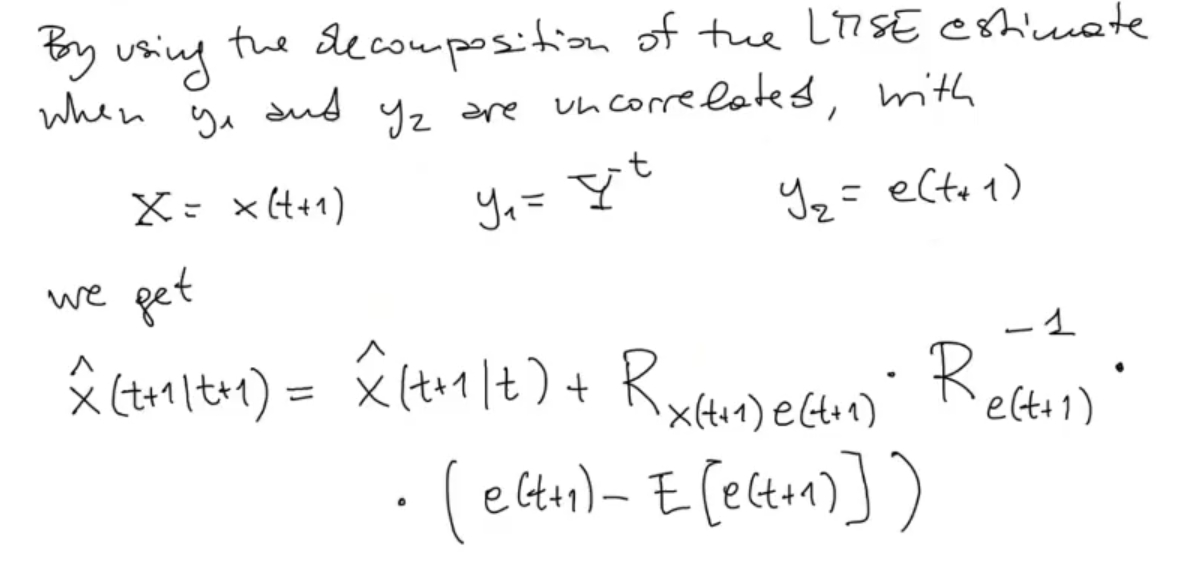 By using the decomposition of the LMSE estimate
when y₁ and y₂ are uncorrelated, with
X = x(t+1) y₁ = Y^t y₂ = e(t+1)
we get
x̂(t+1|t+1) = x̂(t+1|t) + R_{x(t+1)e(t+1)} · R_{e(t+1)}^{-1} ·
· (e(t+1) - E[e(t+1)])